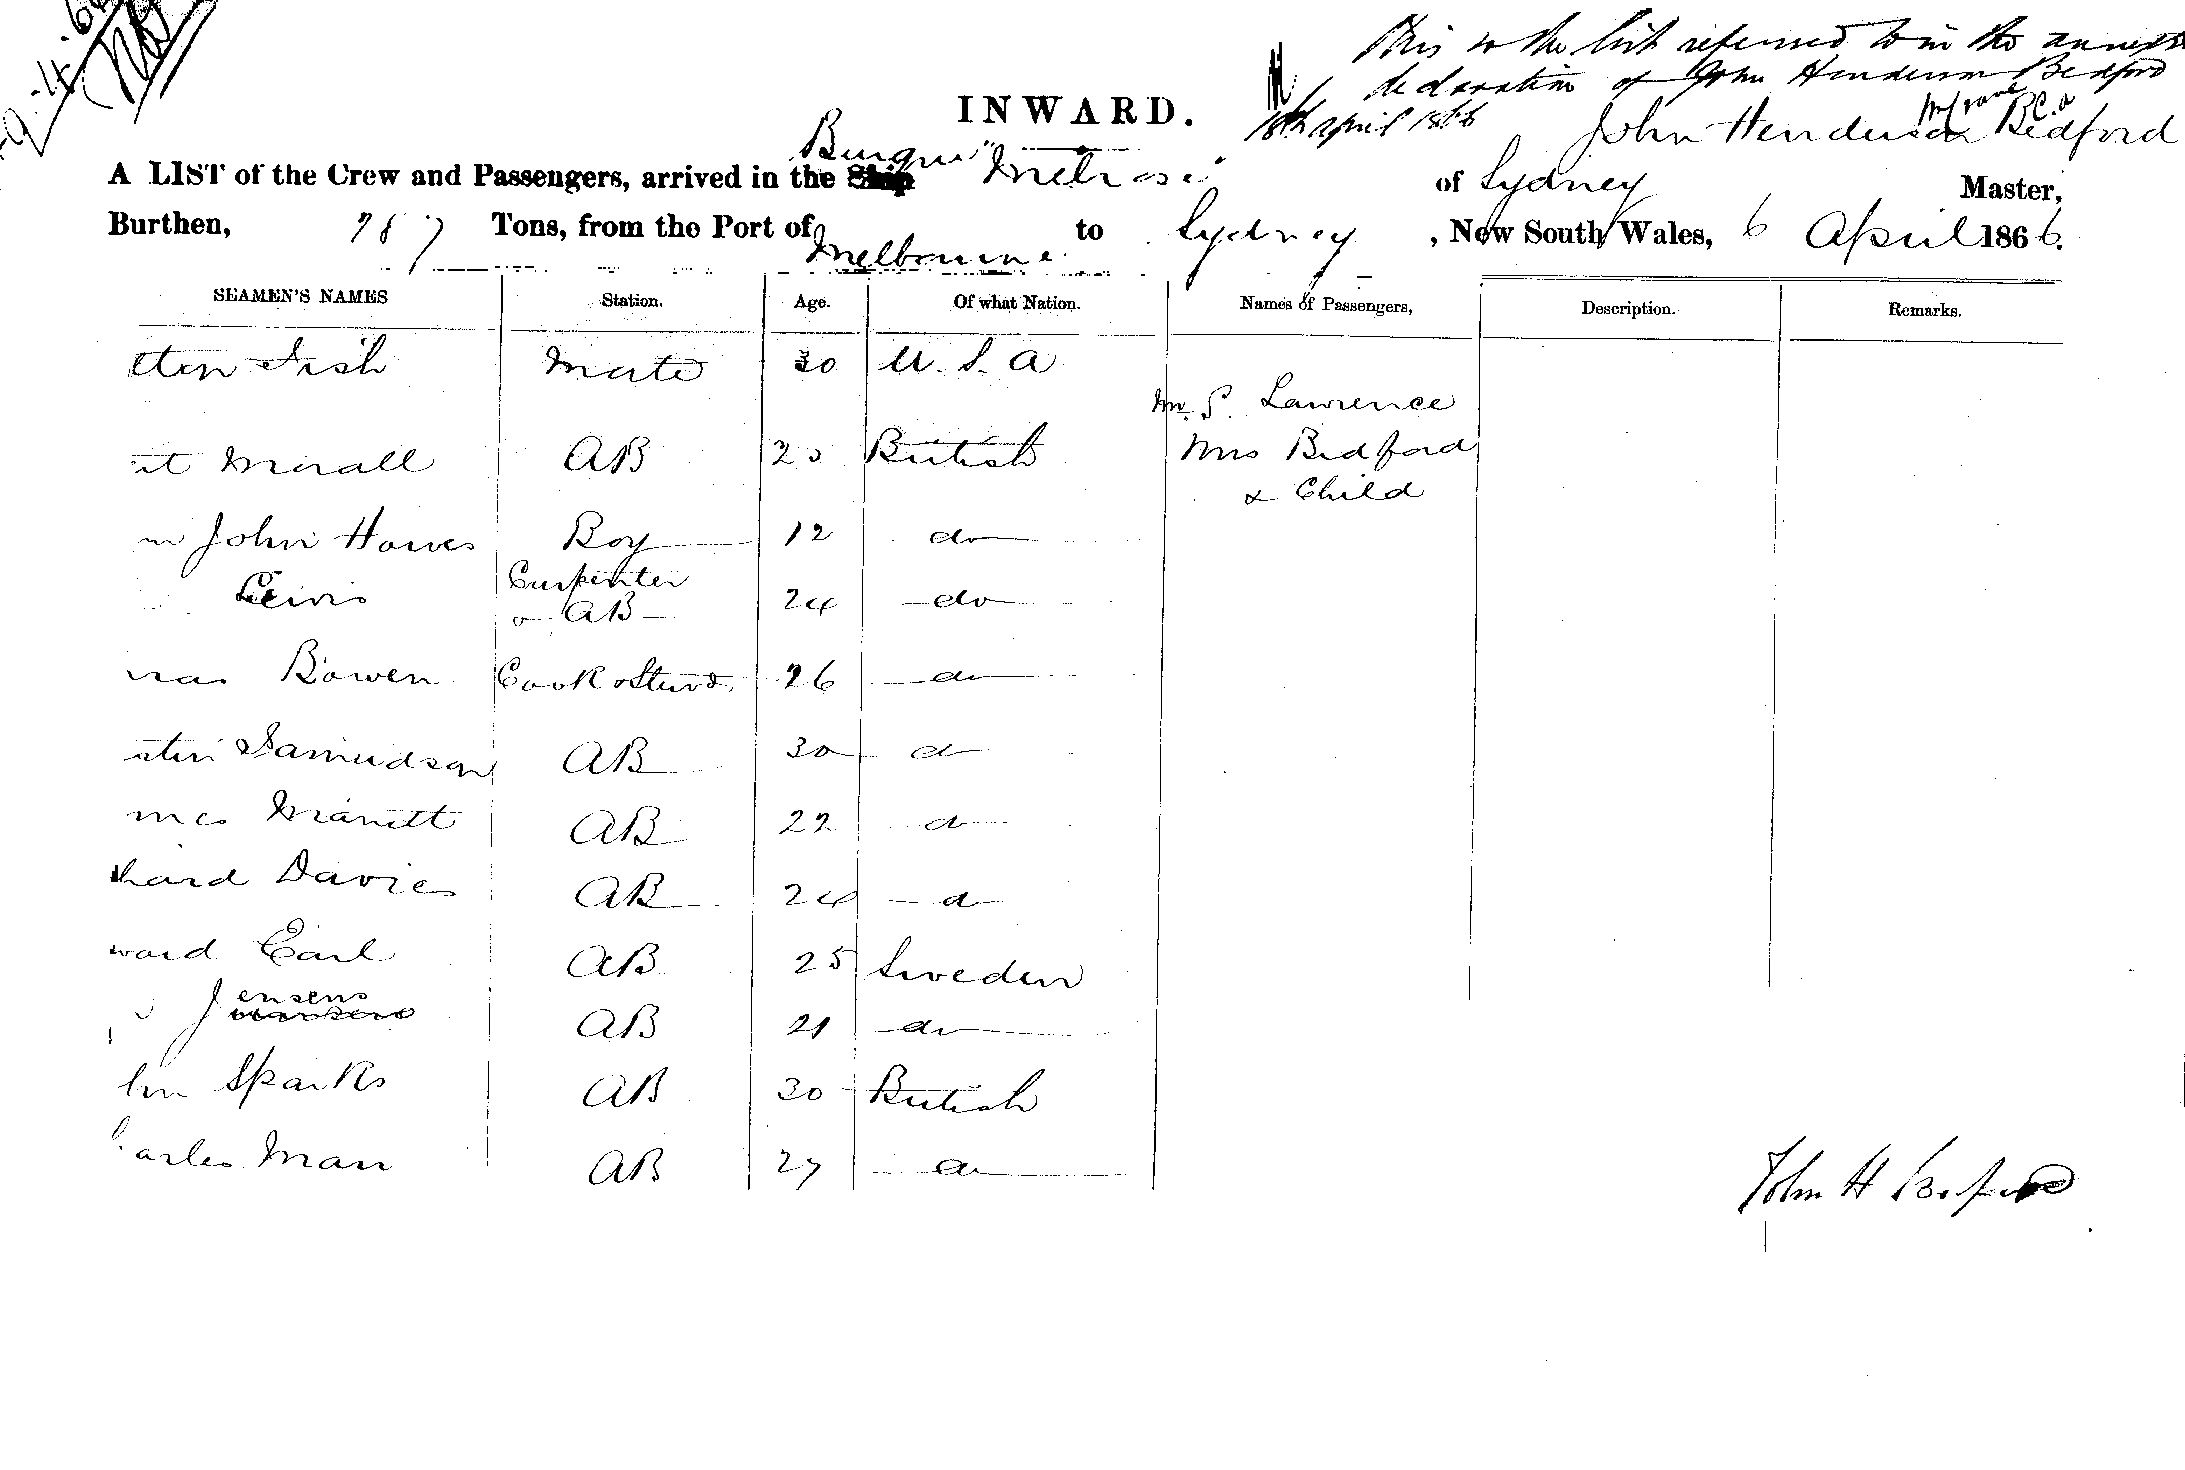 This is the list referred to in the annexed
declaration of John Henderson Bedford
18th april 1866
John Henderson Bedford
INWARD.
A LIST of the Crew and Passengers, arrived in the Ship Barque of Sydney Master,
Burthen, 787 Tons, from the Port of Melbourne to Sydney, New South Wales, 6 April 1866.
SEAMEN'S NAMES Station. Age. Of what Nation. Names of Passengers, Description. Remarks.
Fish Mate 30 U.S.A
Mr. S. Lawrence
AB British Mrs Bedford
& Child
John Howes Boy 12 do
Lewis Carpenter & AB 24 do
Bowen Cook & Stewd 26 do
Samudson AB 30 d
AB 22 d
hard Davies AB 24 d
ward Earl AB 25 Sweden
Jensens AB 21 do
hn Sparks AB 30 British
arles Man AB 27 do
John H Bedford